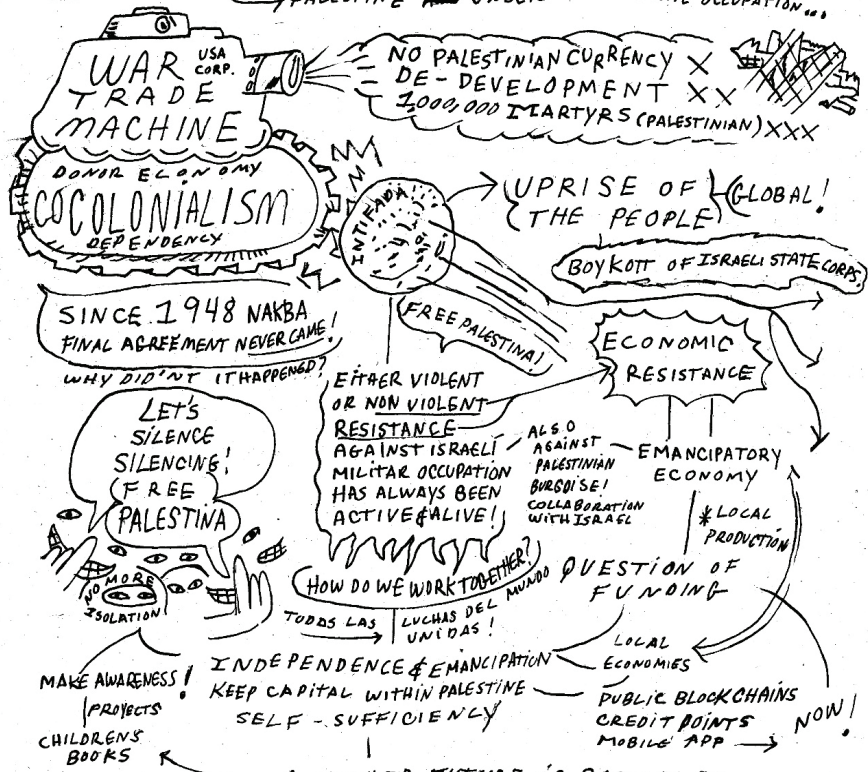 PALESTINE
OCCUPATION...
WAR USA CORP.
TRADE
MACHINE
DONOR ECONOMY
COCOLONIALISM
DEPENDENCY
NO PALESTINIAN CURRENCY X
DE-DEVELOPMENT XX
1,000,000 MARTYRS (PALESTINIAN) XXX
INTIFADA
UPRISE OF
THE PEOPLE
GLOBAL!
BOYKOTT OF ISRAELI STATE CORPS.
SINCE 1948 NAKBA
FINAL AGREEMENT NEVER CAME!
WHY DID'NT IT HAPPENED?
FREE PALESTINA!
ECONOMIC
RESISTANCE
LET'S
SILENCE
SILENCING!
FREE
PALESTINA
NO MORE
ISOLATION
EITHER VIOLENT
OR NON VIOLENT
RESISTANCE
AGAINST ISRAELI
MILITAR OCCUPATION
HAS ALWAYS BEEN
ACTIVE & ALIVE!
ALSO
AGAINST
PALESTINIAN
BURGOISE!
COLLABORATION
WITH ISRAEL
EMANCIPATORY
ECONOMY
*LOCAL
PRODUCTION
HOW DO WE WORK TOGETHER?
TODAS LAS
LUCHAS DEL MUNDO
UNIDAS!
QUESTION OF
FUNDING
MAKE AWARENESS!
PROYECTS
CHILDRENS
BOOKS
INDEPENDENCE & EMANCIPATION
KEEP CAPITAL WITHIN PALESTINE
SELF-SUFFICIENCY
LOCAL
ECONOMIES
PUBLIC BLOCKCHAINS
CREDIT POINTS
MOBILE APP
NOW!